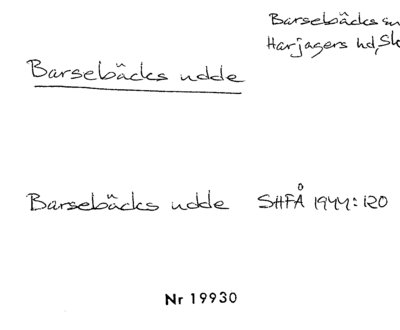 Barsebäcks sn
Harjagers hd, Sk
Barsebäcks udde
Barsebäcks udde SHFÅ 1944: 120
Nr 19930